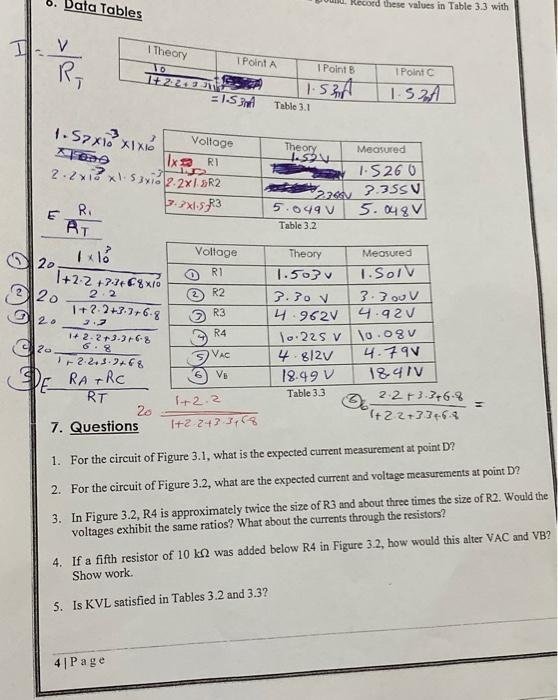 6. Data Tables
Record these values in Table 3.3 with
I = V / RT
I Theory | I Point A | I Point B | I Point C
10 / 1+2.2+3.3 = 1.53mA | 1.53mA | 1.53mA
Table 3.1
1.53x10^-3 x1x10^3
2.2x10^3 x1.53x10^-3
Voltage | Theory | Measured
R1 | 1.52V | 1.526V
2.2x1.5 R2 | 3.366V | 3.355V
3.3x1.5 R3 | 5.049V | 5.048V
Table 3.2
E R1 / RT
① 20 1x10^3 / 1+2.2+3.3+6.8x10^3
② 20 2.2 / 1+2.2+3.3+6.8
③ 20 3.3 / 1+2.2+3.3+6.8
④ 20 6.8 / 1+2.2+3.3+6.8
⑤ E RA+RC / RT
20 1+2.2 / 1+2.2+3.3+6.8
Voltage | Theory | Measured
① R1 | 1.503V | 1.501V
② R2 | 3.30V | 3.300V
③ R3 | 4.962V | 4.92V
④ R4 | 10.225V | 10.08V
⑤ VAC | 4.812V | 4.79V
⑥ VB | 18.49V | 18.41V
Table 3.3
⑥ 2.2+3.3+6.8 / 1+2.2+3.3+6.8 =
7. Questions
1. For the circuit of Figure 3.1, what is the expected current measurement at point D?
2. For the circuit of Figure 3.2, what are the expected current and voltage measurements at point D?
3. In Figure 3.2, R4 is approximately twice the size of R3 and about three times the size of R2. Would the
voltages exhibit the same ratios? What about the currents through the resistors?
4. If a fifth resistor of 10 kΩ was added below R4 in Figure 3.2, how would this alter VAC and VB?
Show work.
5. Is KVL satisfied in Tables 3.2 and 3.3?
4 | Page